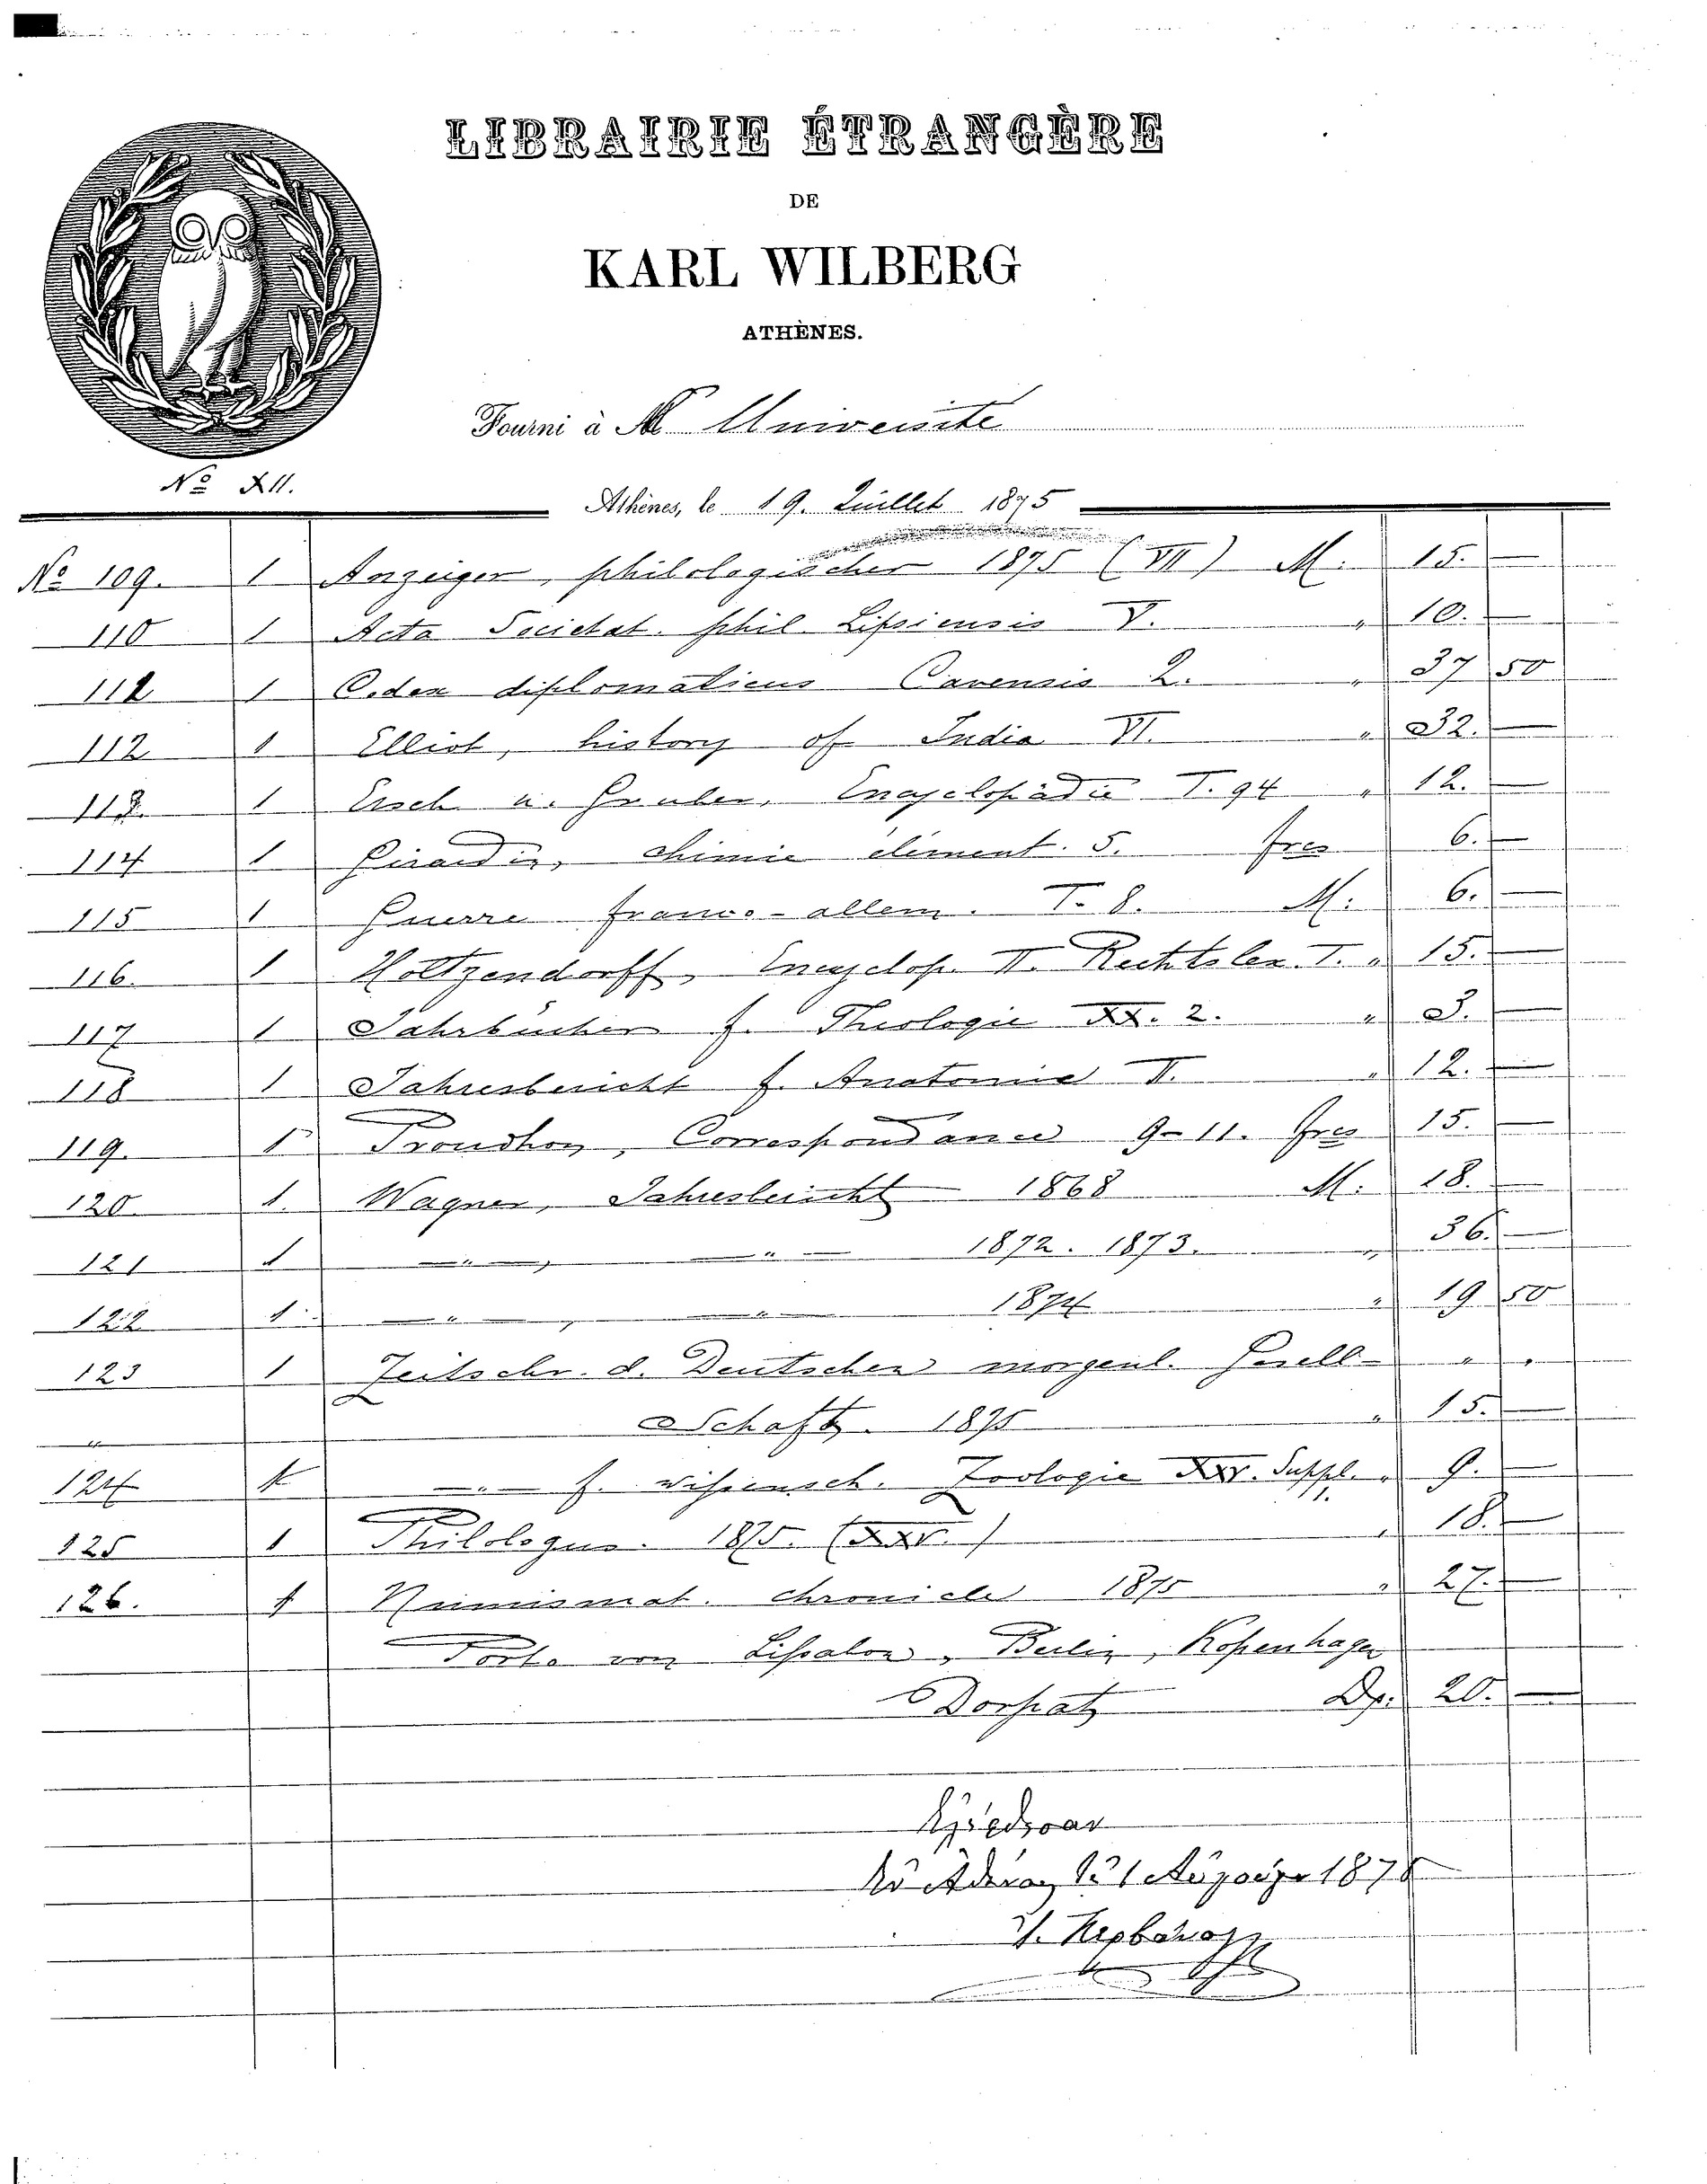 LIBRAIRIE ÉTRANGÈRE
DE
KARL WILBERG
ATHÈNES.
Fourni à M Université
No XII.
Athènes, le 19. Juillet 1875
No 109. 1 Anzeiger, philologischer 1875 (VII) M. 15. —
110 1 Acta Societat. phil. Lipsiensis V. " 10. —
111 1 Codex diplomaticus Cavensis 2. " 37 50
112 1 Elliot, history of India VI. " 32. —
113. 1 Ersch u. Gruber, Encyclopädie T. 94 " 12. —
114 1 Girardin, chimie élément. 5. frcs 6. —
115 1 Guerre franco-allem. T. 8. M. 6. —
116. 1 Holtzendorff, Encyclop. II. Rechtslex. I. " 15. —
117 1 Jahrbücher f. Theologie XX. 2. " 3. —
118 1 Jahresbericht f. Anatomie II. " 12. —
119. 1 Proudhon, Correspondance 9-11. frcs 15. —
120. 1. Wagner, Jahresbericht 1868 M. 18. —
121 1 — " —, — " — 1872. 1873. " 36. —
122 1 — " —, — " — 1874 " 19 50
123 1 Zeitschr. d. Deutschen morgenl. Gesell- " "
" schaft. 1875 " 15. —
124 1 — " — f. wissensch. Zoologie XXV. Suppl. " 9. —
1.
125 1 Philologus. 1875. (XXV.) " 18. —
126. 1 Numismat. chronicle 1875 " 27. —
Porto von Lissabon, Berlin, Kopenhagen
Dorpat Dr. 20. —
1 Αὐγούστου 187